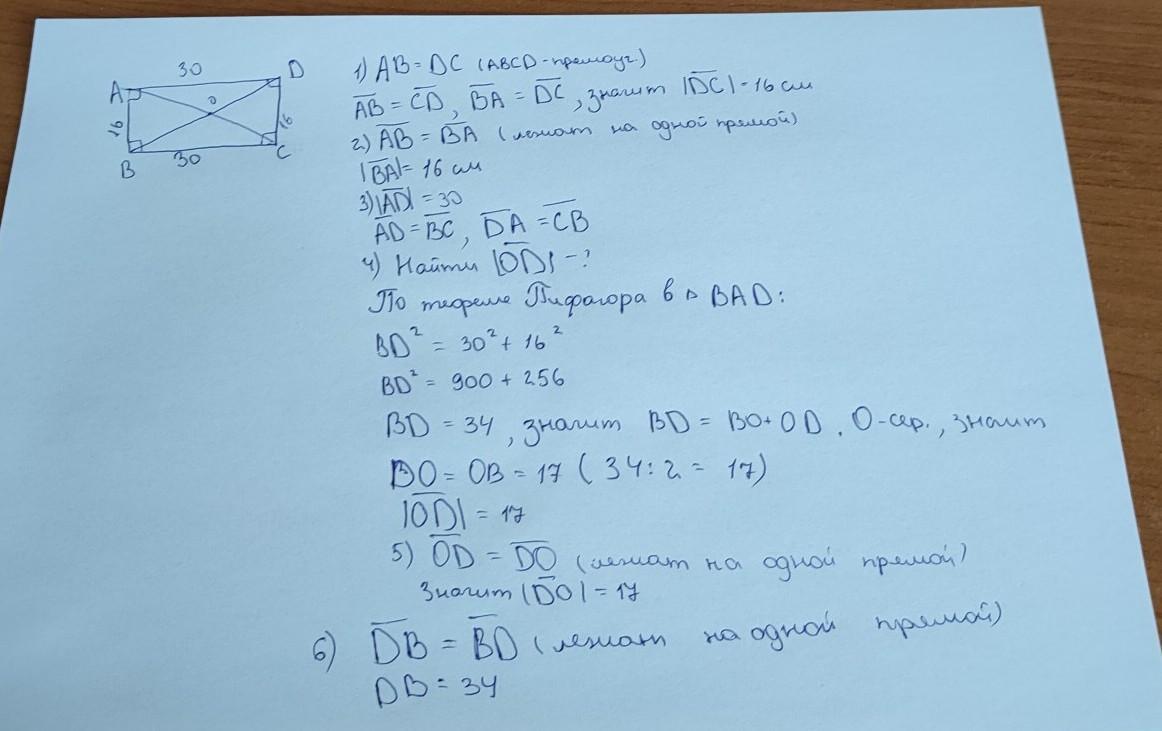 30
A
D
O
16
16
B
30
C
1) AB = DC (ABCD - прямоуг.)
A̅B̅ = C̅D̅, B̅A̅ = D̅C̅, значит |D̅C̅| = 16 см
2) A̅B̅ = B̅A̅ (лежат на одной прямой)
|B̅A̅| = 16 см
3) |A̅D̅| = 30
A̅D̅ = B̅C̅, D̅A̅ = C̅B̅
4) Найти |O̅D̅| - ?
По теореме Пифагора в △ BAD:
BD² = 30² + 16²
BD² = 900 + 256
BD = 34, значит BD = BO + OD, O - сер., значит
DO = OB = 17 (34 : 2 = 17)
|O̅D̅| = 17
5) O̅D̅ = D̅O̅ (лежат на одной прямой)
Значит |D̅O̅| = 17
6) D̅B̅ = B̅D̅ (лежат на одной прямой)
DB = 34